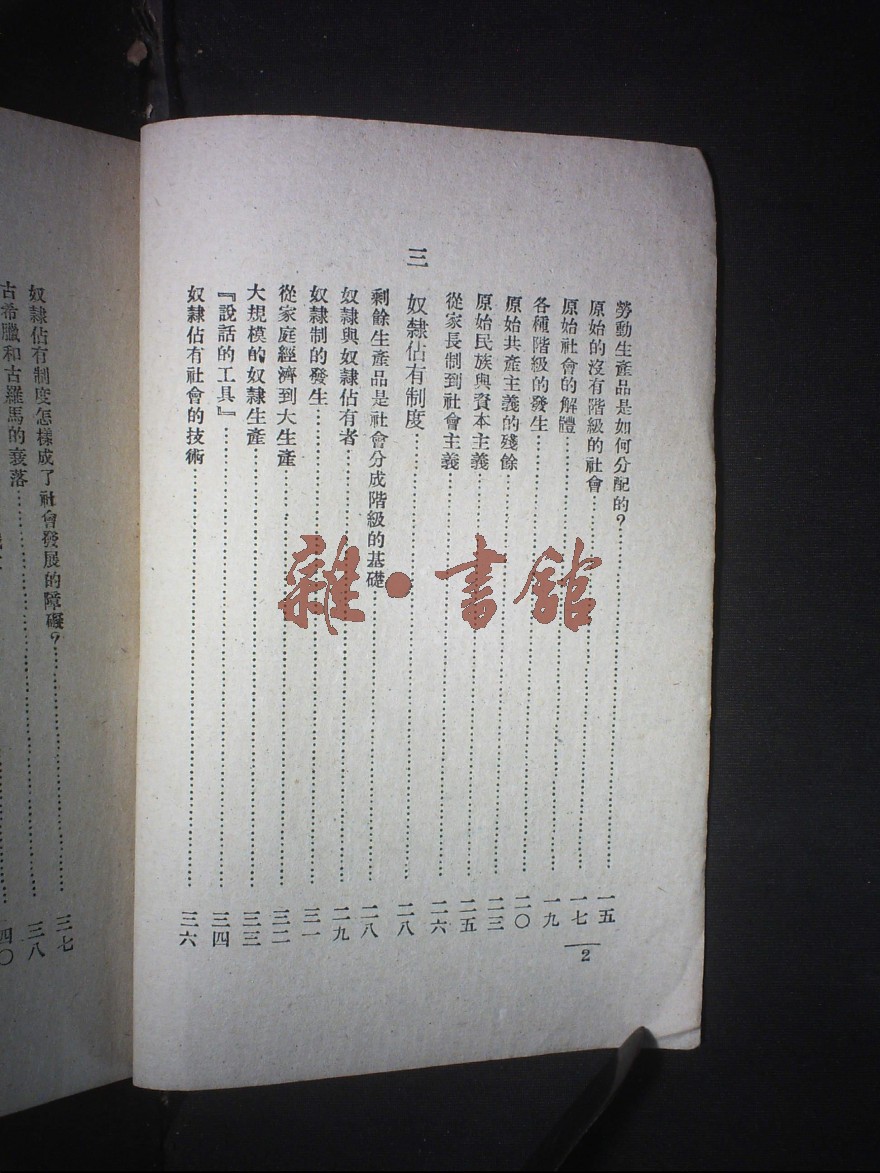 勞動生產品是如何分配的？……一五
原始的沒有階級的社會……一七
原始社會的解體……一九
各種階級的發生……二〇
原始共產主義的殘餘……二三
原始民族與資本主義……二五
從家長制到社會主義……二六
三 奴隸佔有制度……二八
剩餘生產品是社會分成階級的基礎……二八
奴隸與奴隸佔有者……二九
奴隸制的發生……三一
從家庭經濟到大生產……三二
大規模的奴隸生產……三三
『說話的工具』……三四
奴隸佔有社會的技術……三六
2
奴隸佔有制度怎樣成了社會發展的障礙？……三七
古希臘和古羅馬的衰落……三八
四〇
雜·書館